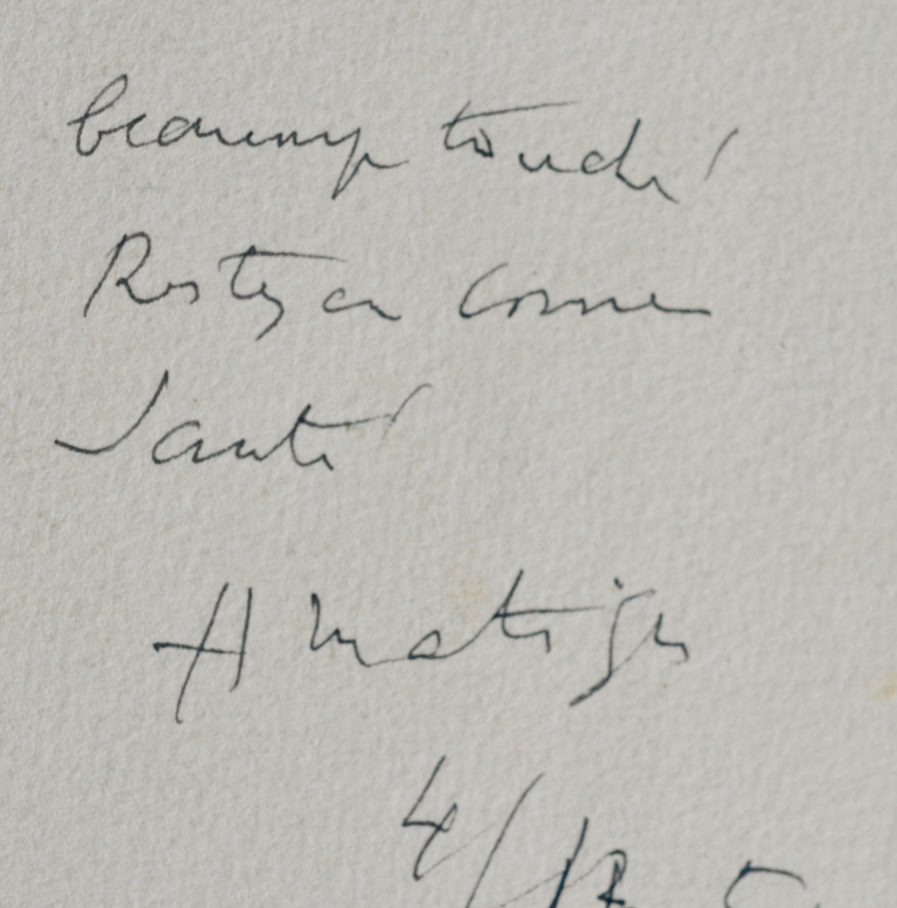 beaucoup touché
Restez en bonne
Santé
H Matisse
4/